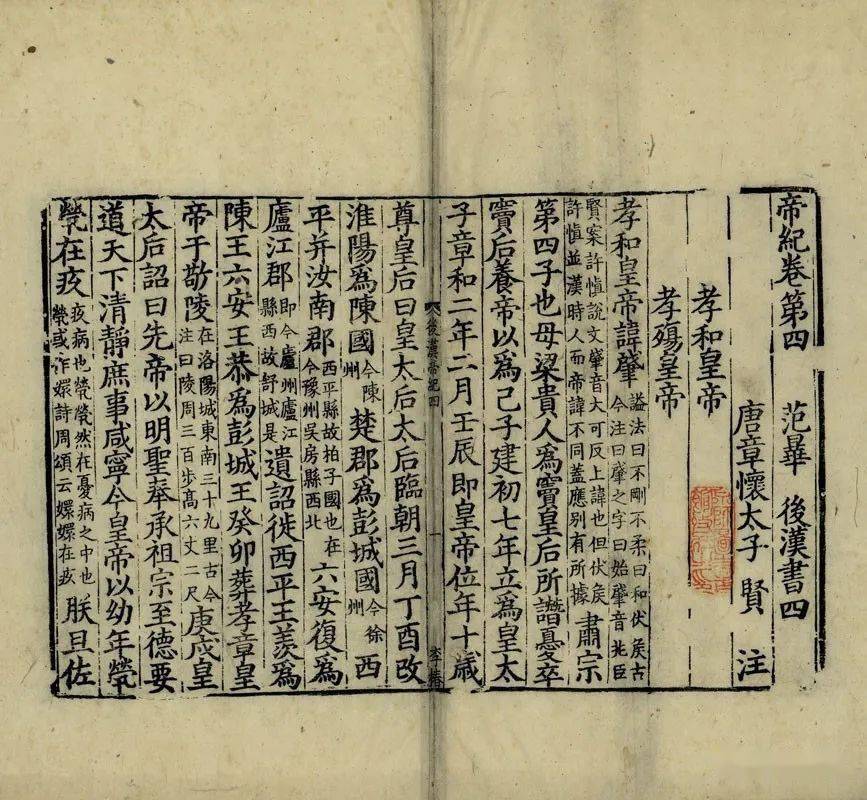 帝紀卷第四 范曄 後漢書四
唐章懷太子 賢 注
孝和皇帝
孝殤皇帝
孝和皇帝諱肇謚法曰不剛不柔曰和伏矦古今注曰肇之字曰始肇音兆臣賢案許慎說文肇音大可反上諱也但伏矦許慎並漢時人而帝諱不同蓋應别有所據肅宗
第四子也母梁貴人爲竇皇后所譖憂卒
竇后養帝以爲己子建初七年立爲皇太
子章和二年二月壬辰即皇帝位年十歲
後漢帝紀四
一
李椿
尊皇后曰皇太后太后臨朝三月丁酉改
淮陽爲陳國今陳州楚郡爲彭城國今徐州西
平并汝南郡西平縣故柏子國也在今豫州吳房縣西北六安復爲
廬江郡即今廬州廬江縣西故舒城是遺詔徙西平王羨爲
陳王六安王恭爲彭城王癸卯葬孝章皇
帝于敬陵在洛陽城東南三十九里古今注曰陵周三百步高六丈二尺庚戌皇
太后詔曰先帝以明聖奉承祖宗至德要
道天下清靜庶事咸寧今皇帝以幼年煢
煢在疚疚病也煢煢然在憂病之中也煢或作嬛詩周頌云嬛嬛在疚朕且佐